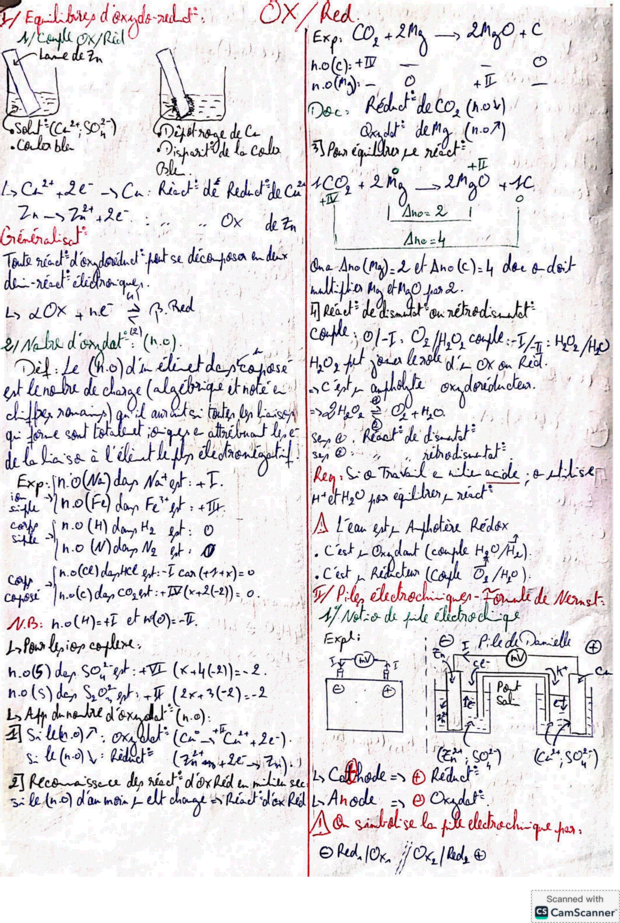 OX/Red.
I/ Equilibres d'oxydo-réduct°:
1/ Couple OX/Réd
Lame de Zn
Solut° (Cu²⁺; SO₄²⁻)
• Couleur bleu
Dépôt rouge de Cu
Disparit° de la couleur
Bleu.
↳ Cu²⁺ + 2e⁻ → Cu: Réact° de Réduct° de Cu²⁺
Zn → Zn²⁺ + 2e⁻: " " Ox de Zn
Généralisat°
Toute réact° d'oxydoréduct° peut se décomposer en deux
demi-réact° électronique.
↳ αOx + ne⁻ (1)⇌(2) β.Red
2/ Nabre d'oxydat°: (n.o).
Déf: Le (n.o) d'un élément dans 1 composé
est le nombre de charge (algébrique et noté en
chiffres romains) qu'il aurait si toutes les liaisons
qui forme sont totalement ioniques en attribuant les e⁻
de la liaison à l'élément le plus électronégatif.
Exp: ion simple { n.o(Na) dans Na⁺ est: +I.
n.o(Fe) dans Fe³⁺ est: +III.
corps simple { n.o(H) dans H₂ est: 0
n.o(N) dans N₂ est: 0
corps composé { n.o(Cl) dans HCl est: -I car (+1+x)=0
n.o(c) dans CO₂ est: +IV (x+2(-2))=0.
N.B: n.o(H)=+I et n(O)=-II.
↳ Pour les ions complexe:
n.o(S) dans SO₄²⁻ est: +VI (x+4(-2))=-2.
n.o(S) dans S₂O₃²⁻ est: +II (2x+3(-2))=-2
↳ App du nombre d'oxydat° (n.o):
1] Si le (n.o) ↗: oxydat° (Cu → Cu²⁺ + 2e⁻).
Si le (n.o) ↘: Réduct° (Zn²⁺ + 2e⁻ → Zn).
2] Reconnaissance des réact° d'ox Réd en milieu sec
si le (n.o) d'au moins 1 elt change ⇒ Réact° d'ox Réd
Exp: CO₂ + 2Mg → 2MgO + C
n.o(C): +IV — — 0
n.o(Mg): — 0 +II —
Donc: Réduct° de CO₂ (n.o↘)
Oxydat° de Mg (n.o↗)
3] Pour équilibrer 1 réact°
+II
1CO₂ + 2Mg → 2MgO + 1C
+IV 0 0
Δno = 2
Δno = 4
On a Δno(Mg)=2 et Δno(C)=4 donc on doit
multiplier Mg et MgO par 2.
4] Réact° de dismutat° ou rétrodismutat°
Couple: 0/-I: O₂/H₂O₂ couple: -I/-II: H₂O₂/H₂O
H₂O₂ peut jouer le rôle d'1 OX ou Réd.
⇒ C'est 1 ampholyte oxydoréducteur.
⇒ 2H₂O₂ ⇌ O₂ + H₂O.
sens ①: Réact° de dismutat°
sens ②: " " rétrodismutat°.
Req: Si on Travail en milieu acide; on utilise
H⁺ et H₂O pour équilibrer 1 réact°
⚠ L'eau est 1 Amphotère Rédox
• C'est 1 Oxydant (couple H₂O/H₂).
• C'est 1 Réducteur (couple O₂/H₂O).
II/ Piles électrochimiques - Formule de Nernst:
1°/ Notion de pile électrochimique
Expl:
I mV I
⊖ ⊕
⊖ Pile de Danielle ⊕
I mV
Zn Cu
Pont
Salin
(Zn²⁺; SO₄²⁻) (Cu²⁺; SO₄²⁻)
↳ Cathode ⇒ ⊕ Réduct°
↳ Anode ⇒ ⊖ Oxydat°.
⚠ On simbolise la pile électrochimique par:
⊖ Red₁/Ox₁ // Ox₂/Red₂ ⊕
Scanned with
CS CamScanner